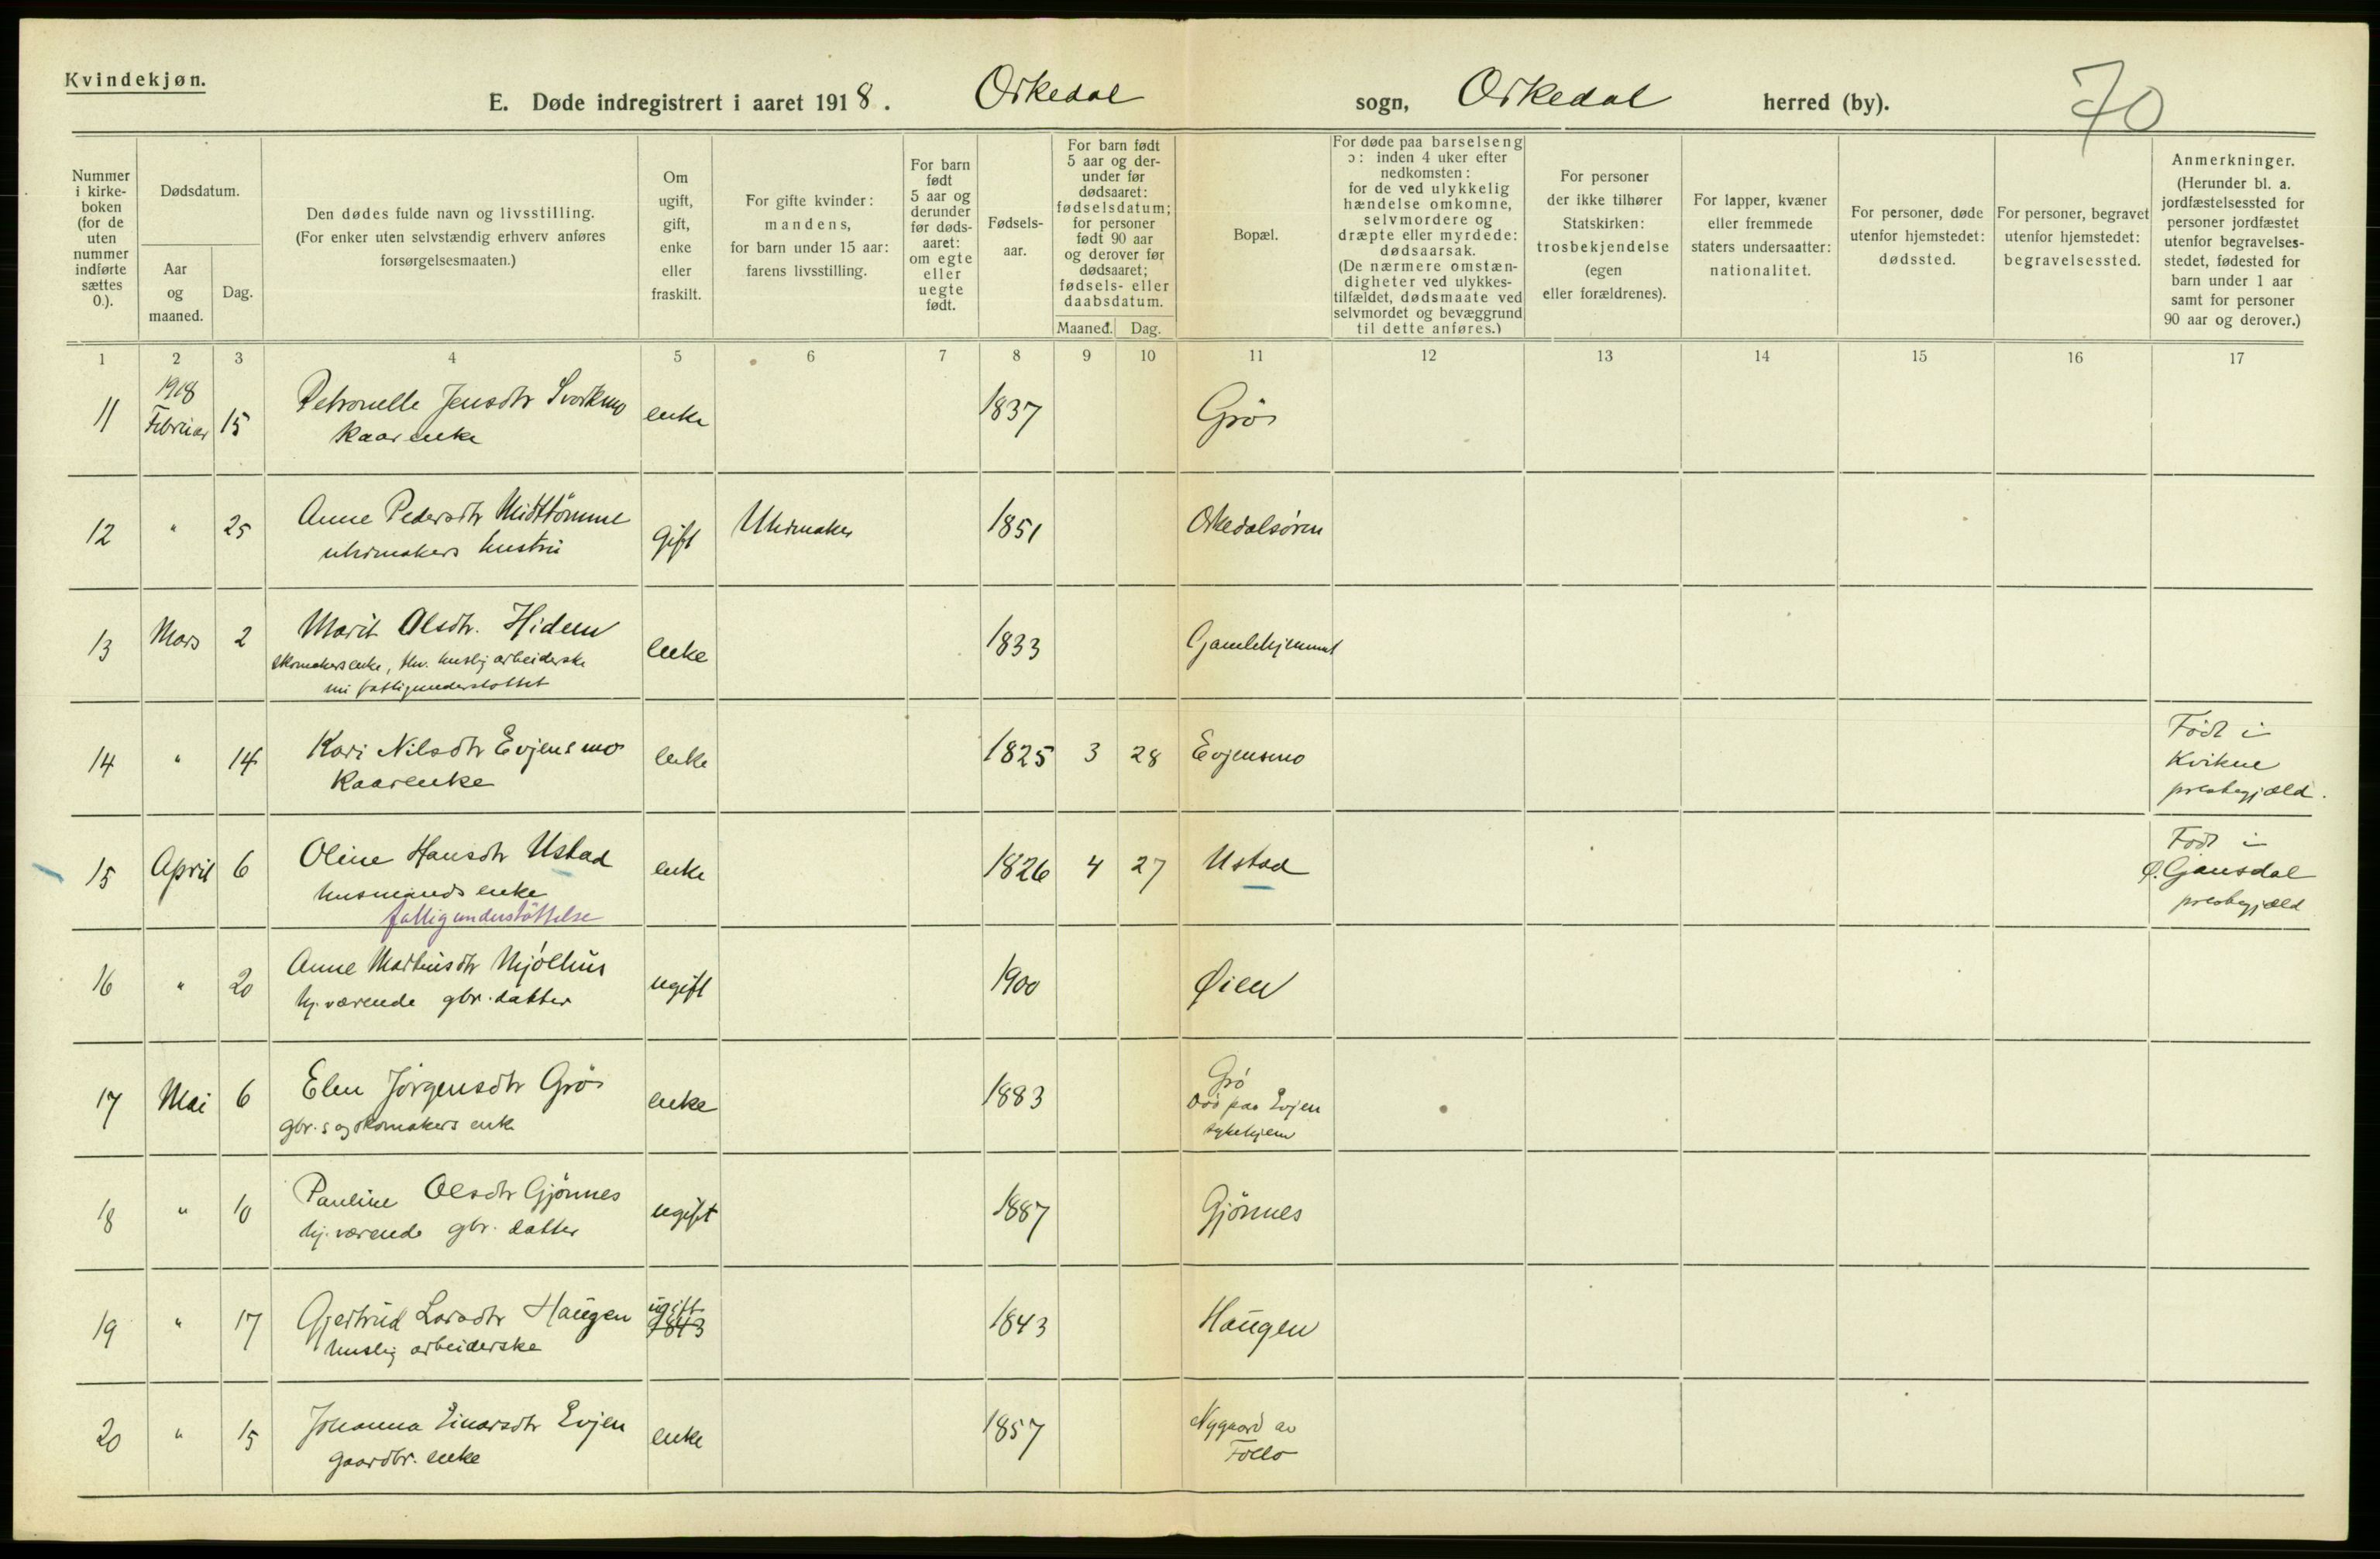 Kvindekjøn.
E. Døde indregistrert i aaret 1918. Orkedal sogn, Orkedal herred (by).
70
Nummer i kirkeboken (for de uten nummer indførte sættes 0.).
Dødsdatum.
Aar og maaned.
Dag.
Den dødes fulde navn og livsstilling.
(For enker uten selvstændig erhverv anføres forsørgelsesmaaten.)
Om ugift, gift, enke eller fraskilt.
For gifte kvinder: mandens, for barn under 15 aar: farens livsstilling.
For barn født 5 aar og derunder før dødsaaret: om egte eller uegte født.
Fødselsaar.
For barn født 5 aar og derunder før dødsaaret: fødselsdatum; for personer født 90 aar og derover før dødsaaret; fødsels- eller daabsdatum.
Maaned. Dag.
Bopæl.
For døde paa barselseng ɔ: inden 4 uker efter nedkomsten: for de ved ulykkelig hændelse omkomne, selvmordere og dræpte eller myrdede: dødsaarsak. (De nærmere omstændigheter ved ulykkestilfældet, dødsmaate ved selvmordet og bevæggrund til dette anføres.)
For personer der ikke tilhører Statskirken: trosbekjendelse (egen eller forældrenes).
For lapper, kvæner eller fremmede staters undersaatter: nationalitet.
For personer, døde utenfor hjemstedet: dødssted.
For personer, begravet utenfor hjemstedet: begravelsessted.
Anmerkninger. (Herunder bl. a. jordfæstelsessted for personer jordfæstet utenfor begravelsesstedet, fødested for barn under 1 aar samt for personer 90 aar og derover.)
1 2 3 4 5 6 7 8 9 10 11 12 13 14 15 16 17
1918
11 Februar 15 Petronelle Jensdtr Svorkmo enke 1837 Grö
kaarenke
12 " 25 Anne Pedersdtr Midttömme gift Uhrmaker 1851 Orkedalsören
uhrmakers hustru
13 Mars 2 Marit Olsdtr. Hidem enke 1833 Gamlehjemmet
skomakersenke, fhv. huslig arbeiderske
nu fattigunderstöttet
14 " 14 Kari Nilsdtr Evjensmo enke 1825 3 28 Evjensmo Födt i
kaarenke Kvikne
prestegjæld.
15 April 6 Oline Hansdtr Ustad enke 1826 4 27 Ustad Födt i
husmandsenke Ø. Gausdal
fattigunderstöttelse prestegjæld
16 " 20 Anne Mathiisdtr Mjölhus ugift 1900 Øien
hj. værende gbr. datter
17 Mai 6 Elen Jörgensdtr Grö enke 1883 Grö
gbr.s og skomakers enke Död paa Evjen
sykehjem
18 " 10 Pauline Olsdtr Gjönnes ugift 1887 Gjönnes
hj. værende gbr. datter
19 " 17 Gjertrud Larsdtr Haugen ugift 1843 1843 Haugen
huslig arbeiderske
20 " 15 Johanna Einarsdtr Evjen enke 1857 Nygaard av
gaardbr. enke Follo